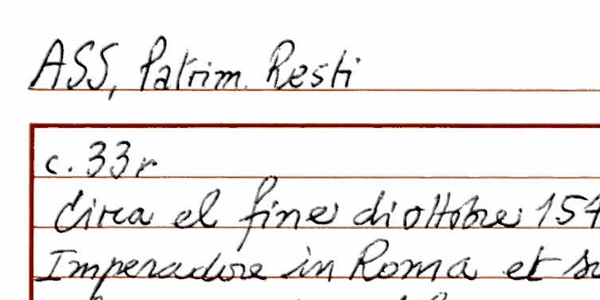 ASS, Patrim. Resti
c. 33r
Circa el fine di ottobre 154
Imperadore in Roma et su